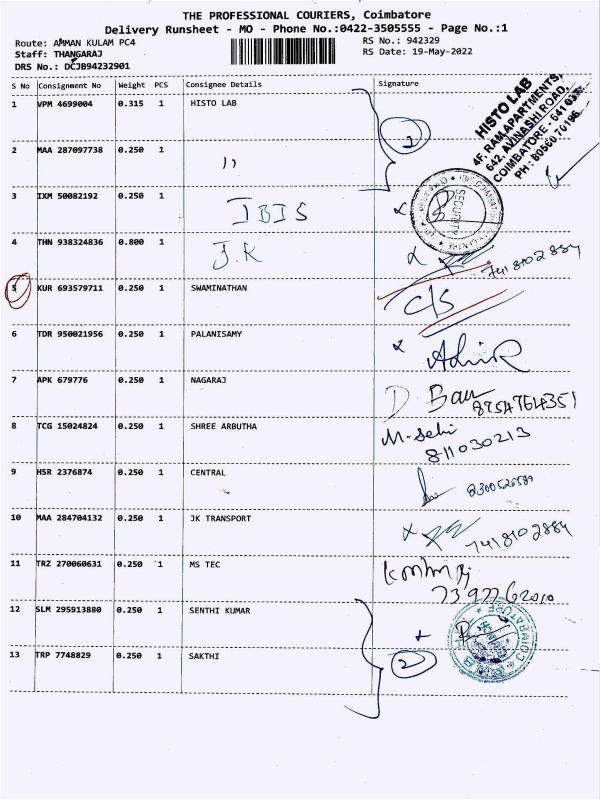 THE PROFESSIONAL COURIERS, Coimbatore
Delivery Runsheet - MO - Phone No.:0422-3505555 - Page No.:1
Route: AMMAN KULAM PC4
Staff: THANGARAJ
DRS No.: DCJB94232901
RS No.: 942329
RS Date: 19-May-2022
S No Consignment No Weight PCS Consignee Details Signature
1 VPM 4699004 0.315 1 HISTO LAB
HISTO LAB
4F, RAM APARTMENTS,
642, AVINASHI ROAD,
COIMBATORE - 641 035
2
2 MAA 287097738 0.250 1 11
3 IXM 50082192 0.250 1 IBIS
SECURITY
4 THN 938324836 0.800 1 J.K
7418102884
5 KUR 693579711 0.250 1 SWAMINATHAN C/S
6 TDR 950021956 0.250 1 PALANISAMY
7 APK 679776 0.250 1 NAGARAJ
8754764351
8 TCG 15024824 0.250 1 SHREE ARBUTHA M-Selvi
811030213
9 HSR 2376874 0.250 1 CENTRAL
10 MAA 284704132 0.250 1 JK TRANSPORT
7418102884
11 TRZ 270060631 0.250 1 MS TEC
12 SLM 295913880 0.250 1 SENTHI KUMAR
COIMBATORE
13 TRP 7748829 0.250 1 SAKTHI
2